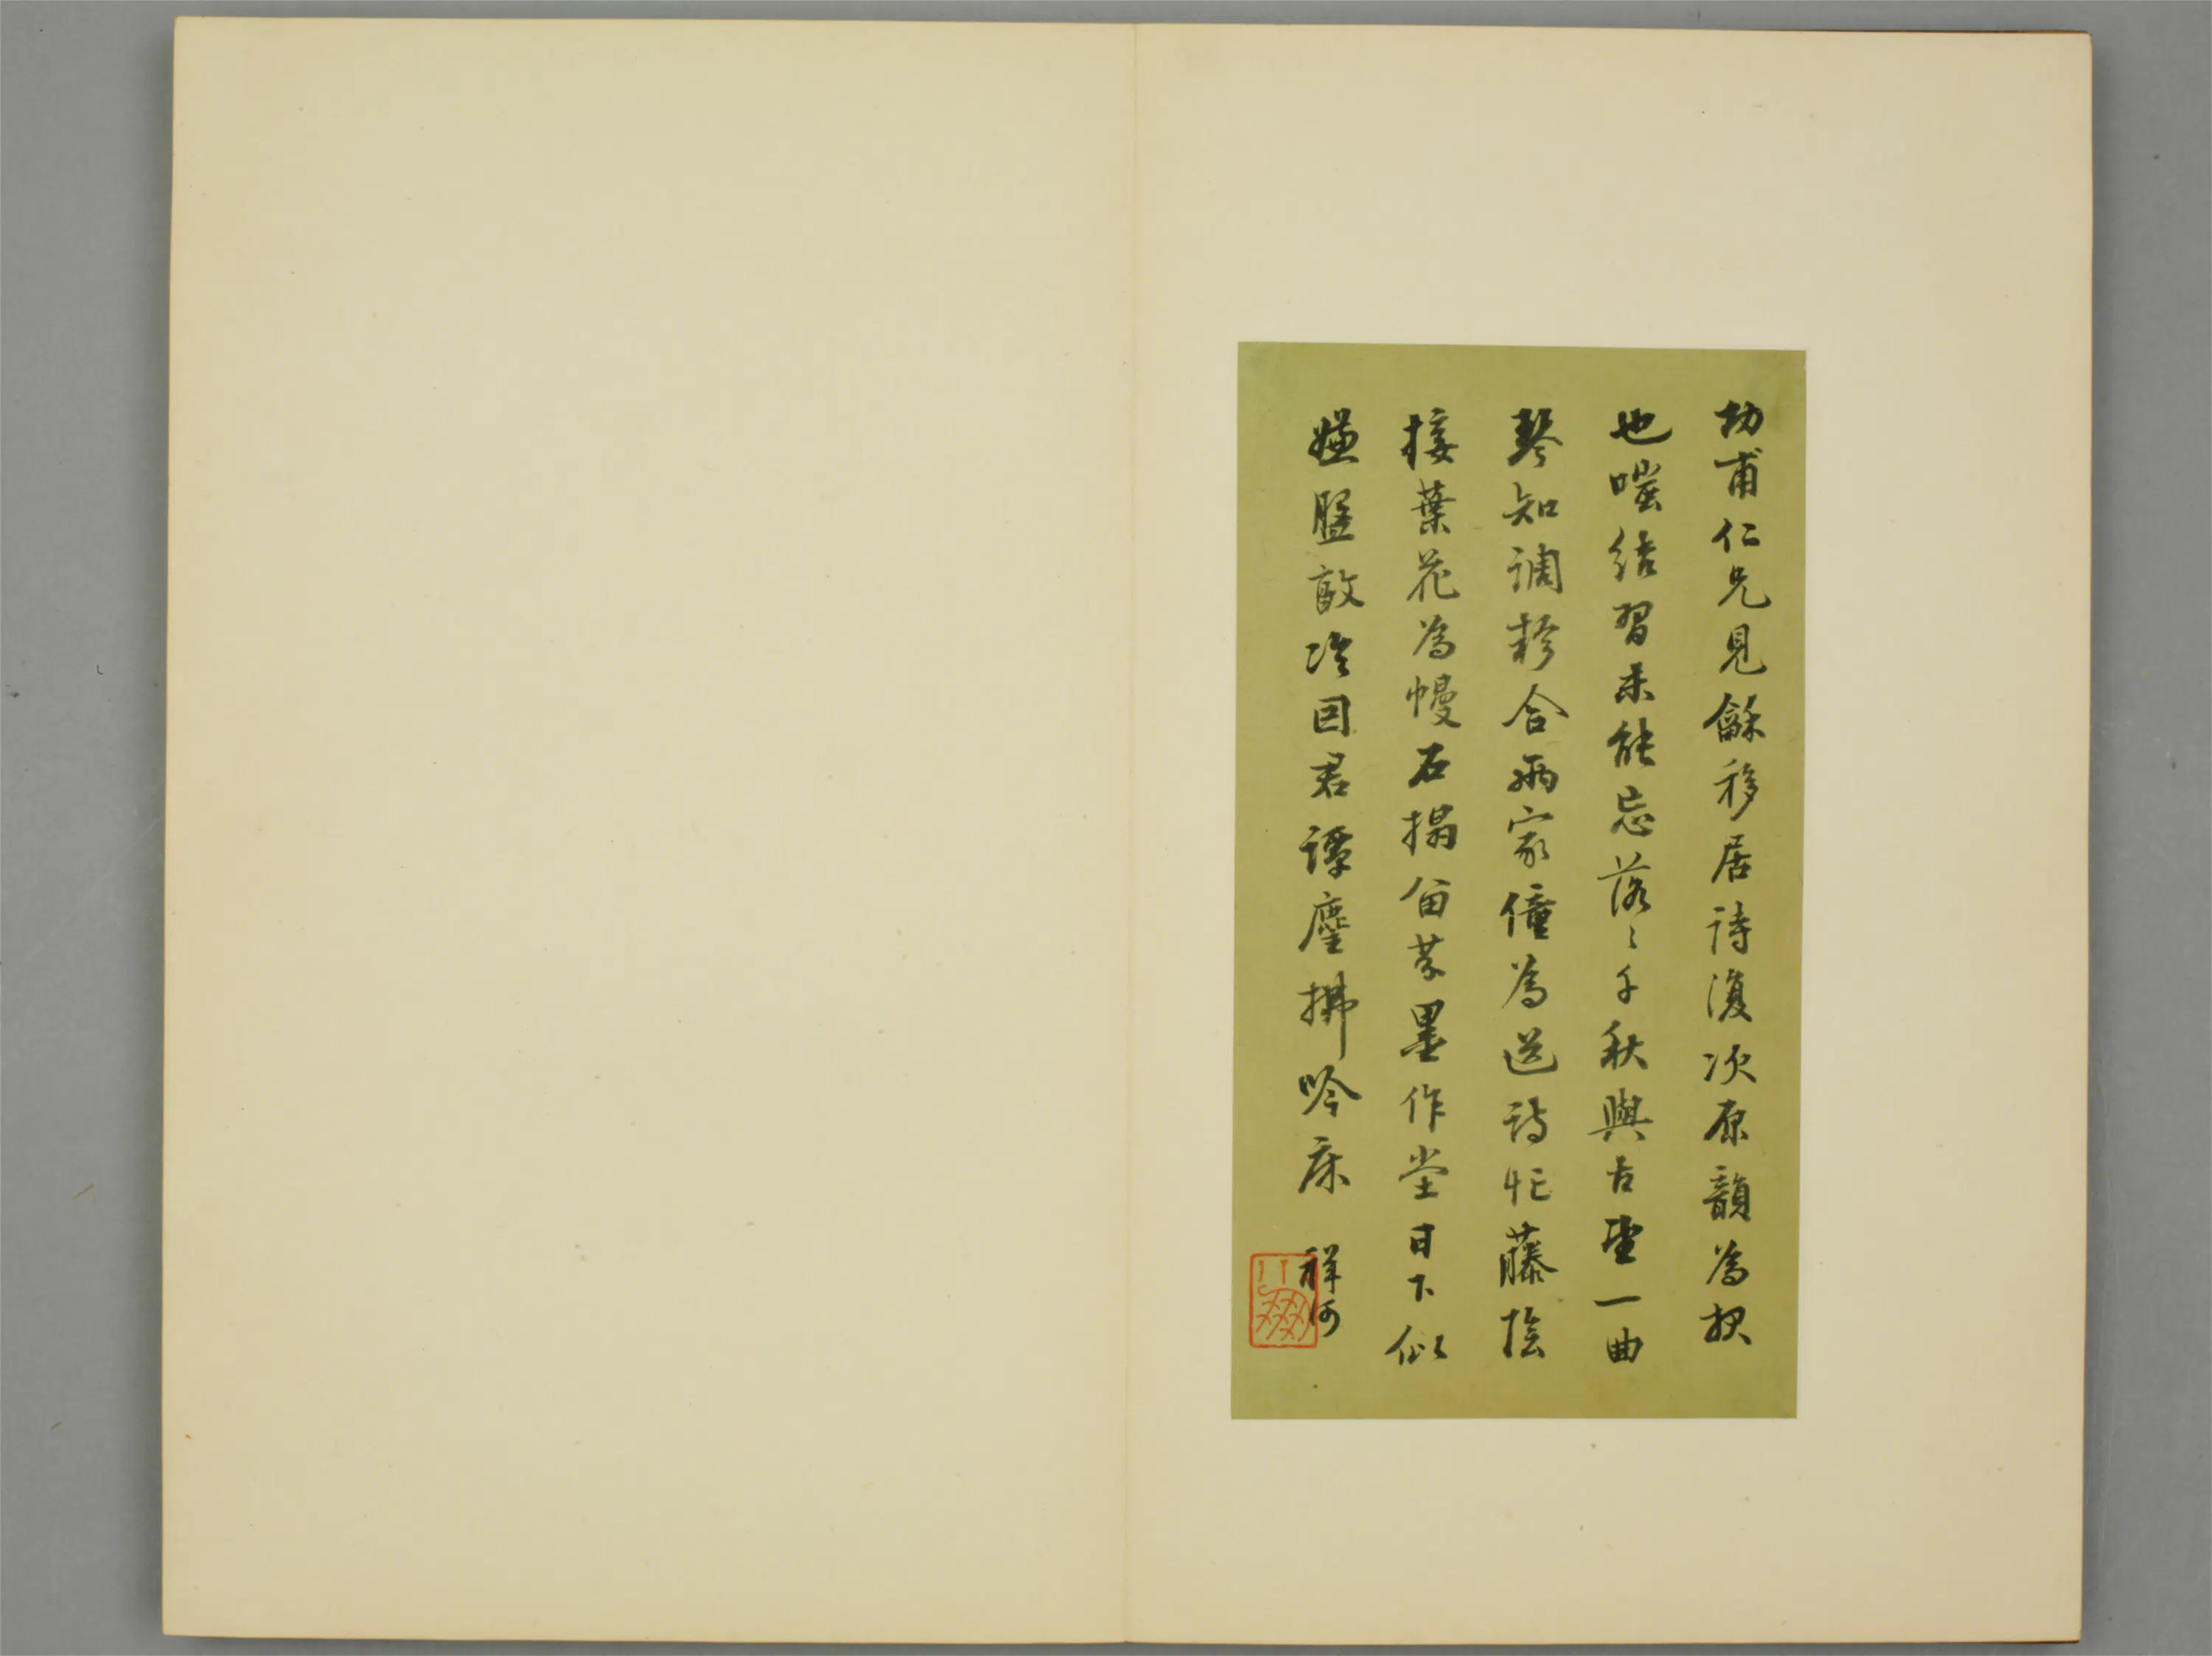 幼甫仁兄見龢移居詩復次原韻為報
也嗤結習未能忘落〻千秋與古望一曲
琴知調軫合兩家僮為送詩忙藤陰
接葉花為幔石搨留苔墨作堂日下似
嫌盟敦冷因君譚麈拂吟床 祥河